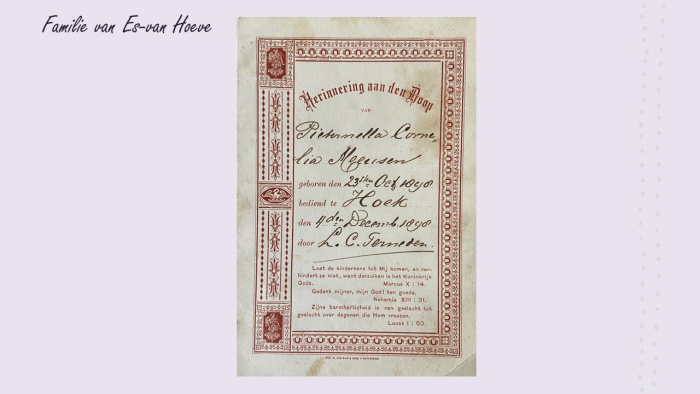 Familie van Es-van Hoeve
Herinnering aan den Doop
VAN
Pieternella Corne„
lia Meeusen
geboren den 23sten Oct 1898
bediend te Hoek
den 4den Decemb. 1898
door L. C.
Laat de kinderkens tot Mij komen, en ver-
hindert ze niet, want derzulken is het Koninkrijk
Gods. Marcus X : 14.
Gedenk mijner, mijn God! ten goede.
Nehemia XIII : 31.
Zijne barmhartigheid is van geslacht tot
geslacht over degenen die Hem vreezen.
Lucas I : 50.